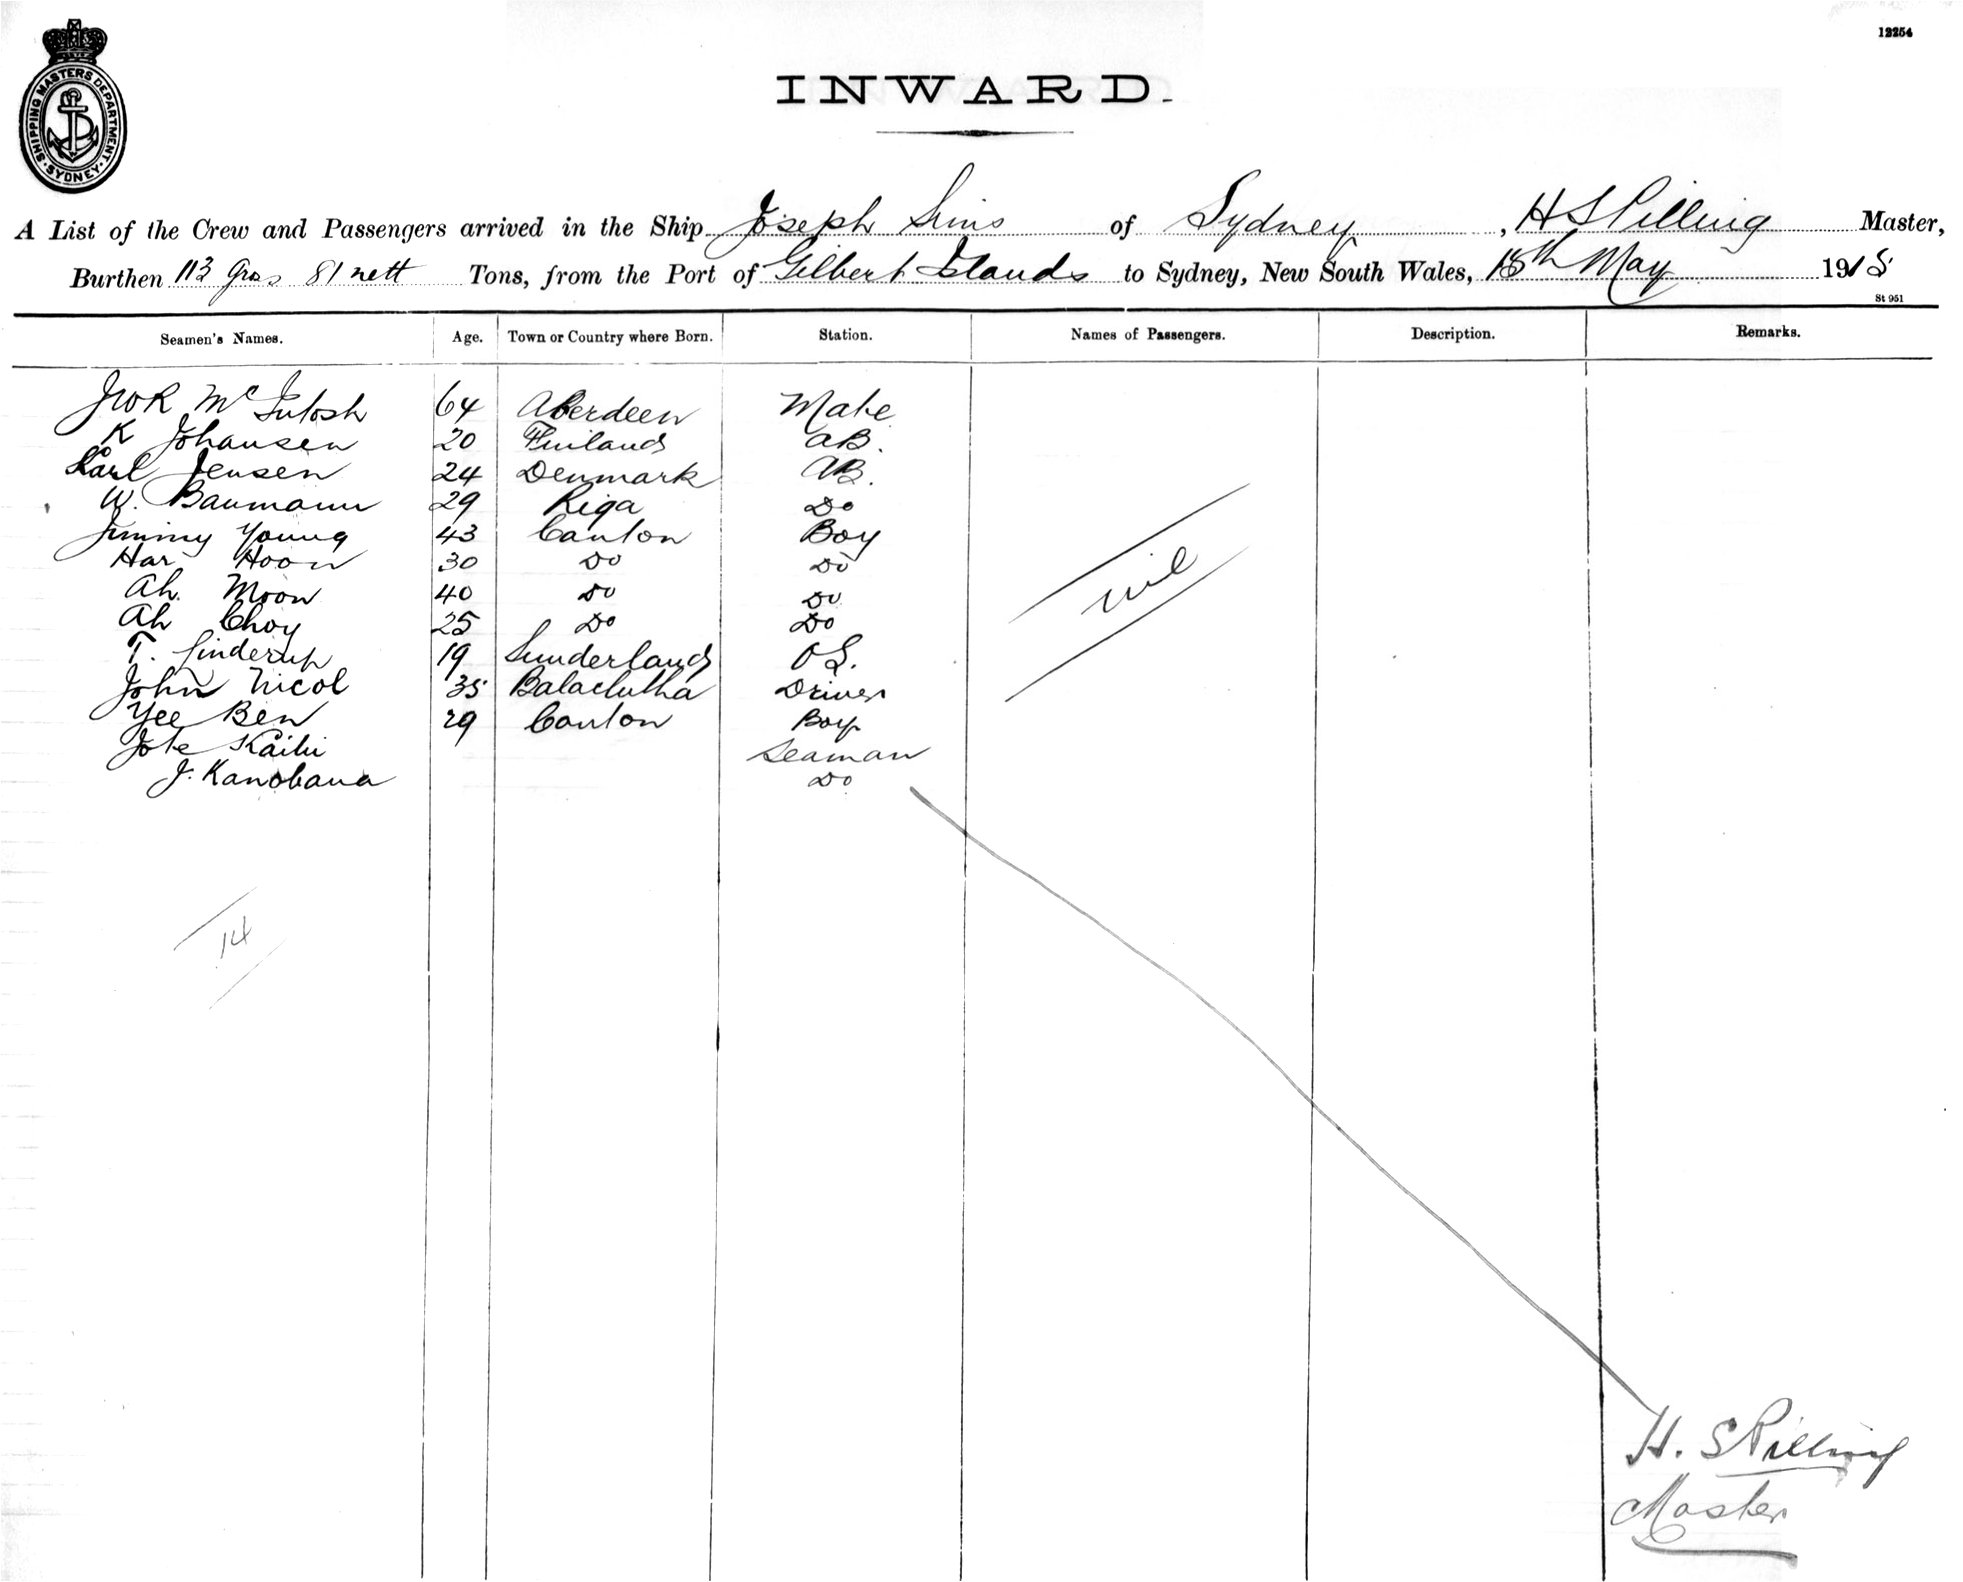 SHIPPING MASTERS DEPARTMENT. SYDNEY
12254
INWARD.
A List of the Crew and Passengers arrived in the Ship Joseph Sims of Sydney, H S Pilling Master,
Burthen 113 Gros 81 nett Tons, from the Port of Gilbert Islands to Sydney, New South Wales, 18th May 1918
St 951
Seamen's Names. Age. Town or Country where Born. Station. Names of Passengers. Description. Remarks.
JWR McIntosh 64 Aberdeen Mate
K Johansen 20 Finland AB.
Karl Jensen 24 Denmark AB.
W. Baumann 29 Riga Do
Jimmy Young 43 Canton Boy
Har Hoon 30 Do Do
Ah Moon 40 Do Do
Ah Choy 25 Do Do
T. Linderup 19 Sunderland OS.
John Nicol 35 Balaclutha Driver
Yee Ben 29 Canton Boy
Seaman
J. Kanobaua Do
nil
14
H. S Pilling
Master